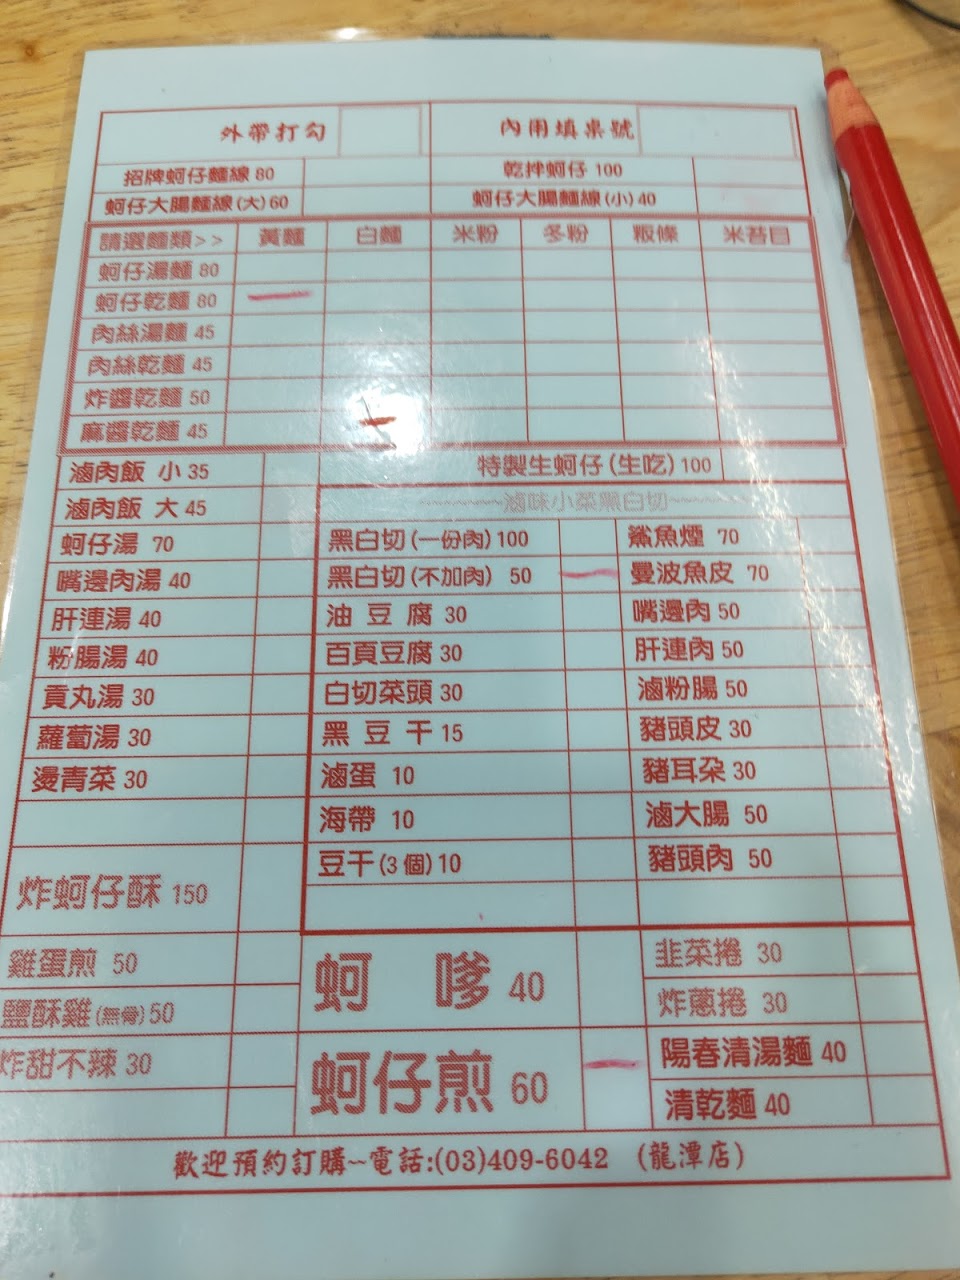 外帶打勾 內用填桌號
招牌蚵仔麵線 80 乾拌蚵仔 100
蚵仔大腸麵線(大) 60 蚵仔大腸麵線(小) 40
請選麵類>> 黃麵 白麵 米粉 冬粉 粄條 米苔目
蚵仔湯麵 80
蚵仔乾麵 80
肉絲湯麵 45
肉絲乾麵 45
炸醬乾麵 50
麻醬乾麵 45
滷肉飯 小 35 特製生蚵仔(生吃) 100
滷肉飯 大 45 ~~~~~滷味小菜黑白切~~~~~
蚵仔湯 70 黑白切(一份肉) 100 鯊魚煙 70
嘴邊肉湯 40 黑白切(不加肉) 50 曼波魚皮 70
肝連湯 40 油豆腐 30 嘴邊肉 50
粉腸湯 40 百頁豆腐 30 肝連肉 50
貢丸湯 30 白切菜頭 30 滷粉腸 50
蘿蔔湯 30 黑豆干 15 豬頭皮 30
燙青菜 30 滷蛋 10 豬耳朵 30
海帶 10 滷大腸 50
豆干(3個) 10 豬頭肉 50
炸蚵仔酥 150
雞蛋煎 50 蚵嗲 40 韭菜捲 30
鹽酥雞(無骨) 50 炸蔥捲 30
炸甜不辣 30 蚵仔煎 60 陽春清湯麵 40
清乾麵 40
歡迎預約訂購~電話:(03)409-6042 (龍潭店)